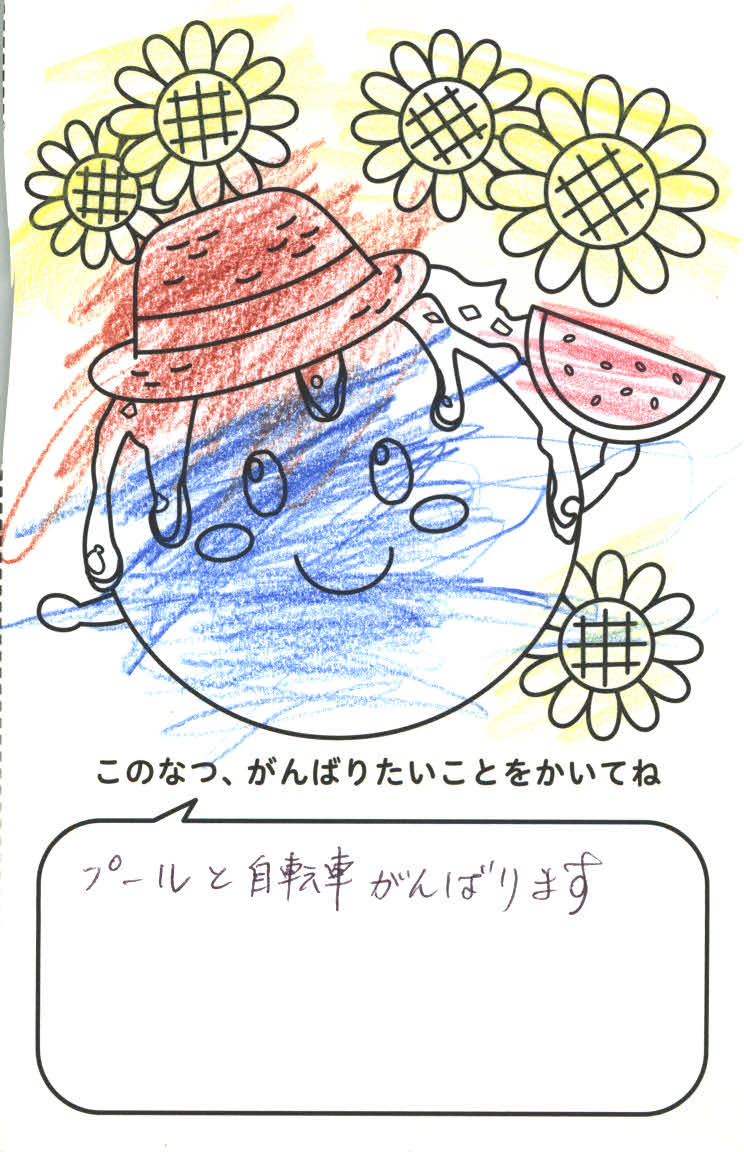 このなつ、がんばりたいことをかいてね
プールと自転車がんばります